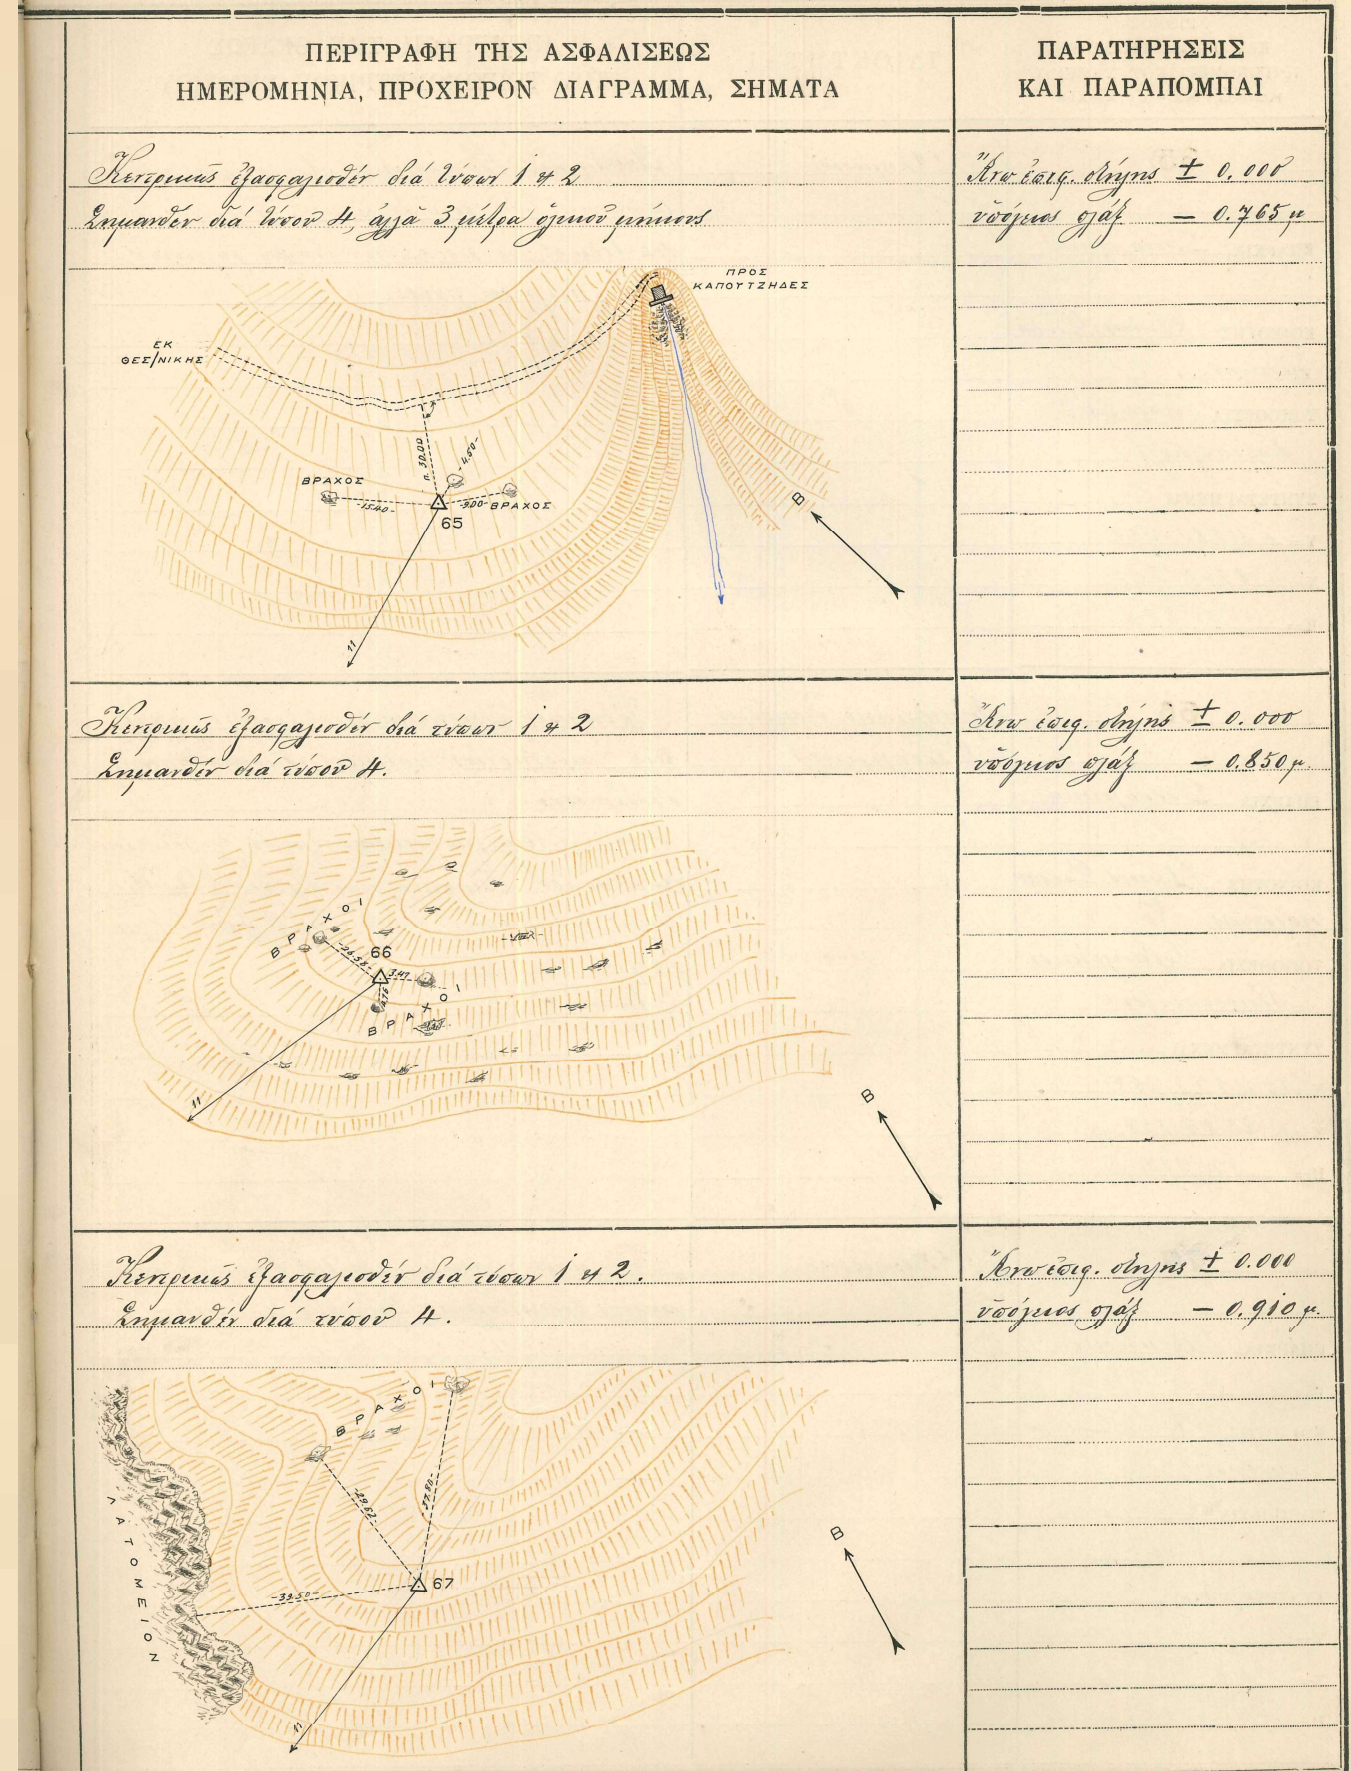 ΠΕΡΙΓΡΑΦΗ ΤΗΣ ΑΣΦΑΛΙΣΕΩΣ
ΗΜΕΡΟΜΗΝΙΑ, ΠΡΟΧΕΙΡΟΝ ΔΙΑΓΡΑΜΜΑ, ΣΗΜΑΤΑ
ΠΑΡΑΤΗΡΗΣΕΙΣ
ΚΑΙ ΠΑΡΑΠΟΜΠΑΙ
Κεντρικῶς ἐξασφαλισθέν διά τύπων 1 & 2
Σημανθέν διά τύπου 4, ἀλλά 3 μέτρα ὁλικοῦ μήκους
Ἄνω ἐπιφ. στήλης ± 0.000
ὑπόγειος πλάξ — 0.765 μ
ΠΡΟΣ
ΚΑΠΟΥΤΖΗΔΕΣ
ΕΚ
ΘΕΣ/ΝΙΚΗΣ
π. 30.00
-4.50-
ΒΡΑΧΟΣ
-15.40-
-9.00-
ΒΡΑΧΟΣ
65
Β
11
Κεντρικῶς ἐξασφαλισθέν διά τύπων 1 & 2
Σημανθέν διά τύπου 4.
Ἄνω ἐπιφ. στήλης ± 0.000
ὑπόγειος πλάξ — 0.850 μ.
ΒΡΑΧΟΙ
66
-26.58-
3.47
ΒΡΑΧΟΙ
11
Β
Κεντρικῶς ἐξασφαλισθέν διά τύπων 1 & 2.
Σημανθέν διά τύπου 4.
Ἄνω ἐπιφ. στήλης ± 0.000
ὑπόγειος πλάξ — 0.910 μ.
ΒΡΑΧΟΙ
-29.62-
-37.80-
ΛΑΤΟΜΕΙΟΝ
-39.50-
67
11
Β